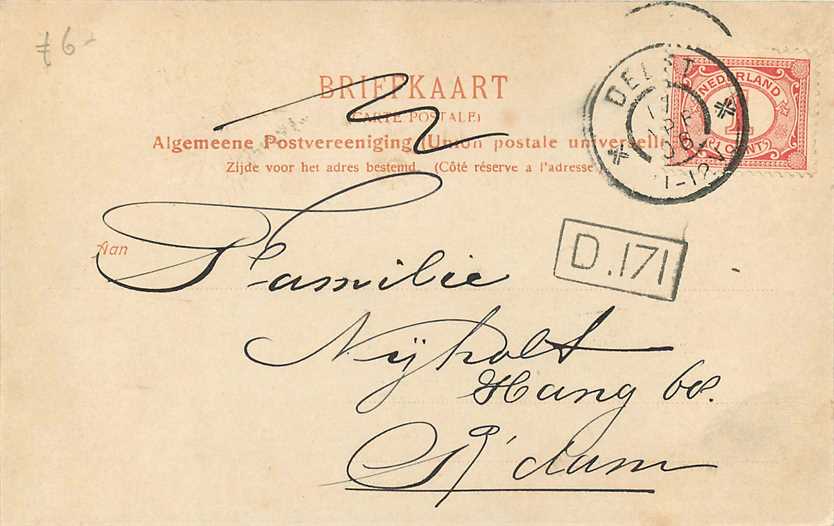 ƒ6-
BRIEFKAART
(CARTE POSTALE)
Algemeene Postvereeniging (Union postale universelle)
Zijde voor het adres bestemd. (Côté réservé a l'adresse)
DELFT
06
NEDERLAND
1
(1 CENT)
D.171
Aan Familie
Nijholt
Hang 68.
R'dam